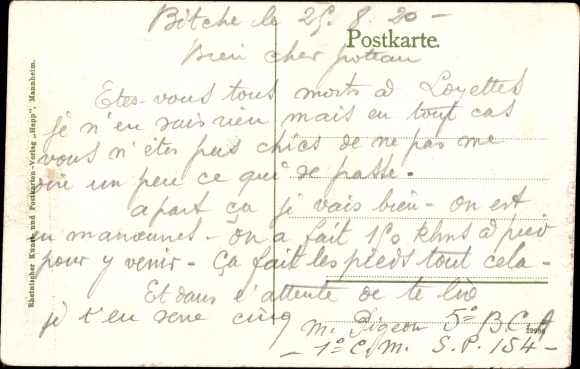 Bitche le 25. 8. 20 -
Postkarte.
Bien cher poteau
Etes-vous tous morts à Loyettes
je n'en sais rien mais en tout cas
vous n'êtes pas chics de ne pas me
dire un peu ce qui se passe.
apart ça je vais bien - on est
en manœuvres - on a fait 150 khns à pied
pour y venir - Ça fait les pieds tout cela -
Et dans l'attente de te lire
je t'en serre cinq
M. Pigeon 5e B.C.A
- 1e C.M. S.P. 154 -
Rheinischer Kunst- und Postkarten-Verlag „Hepp", Mannheim.